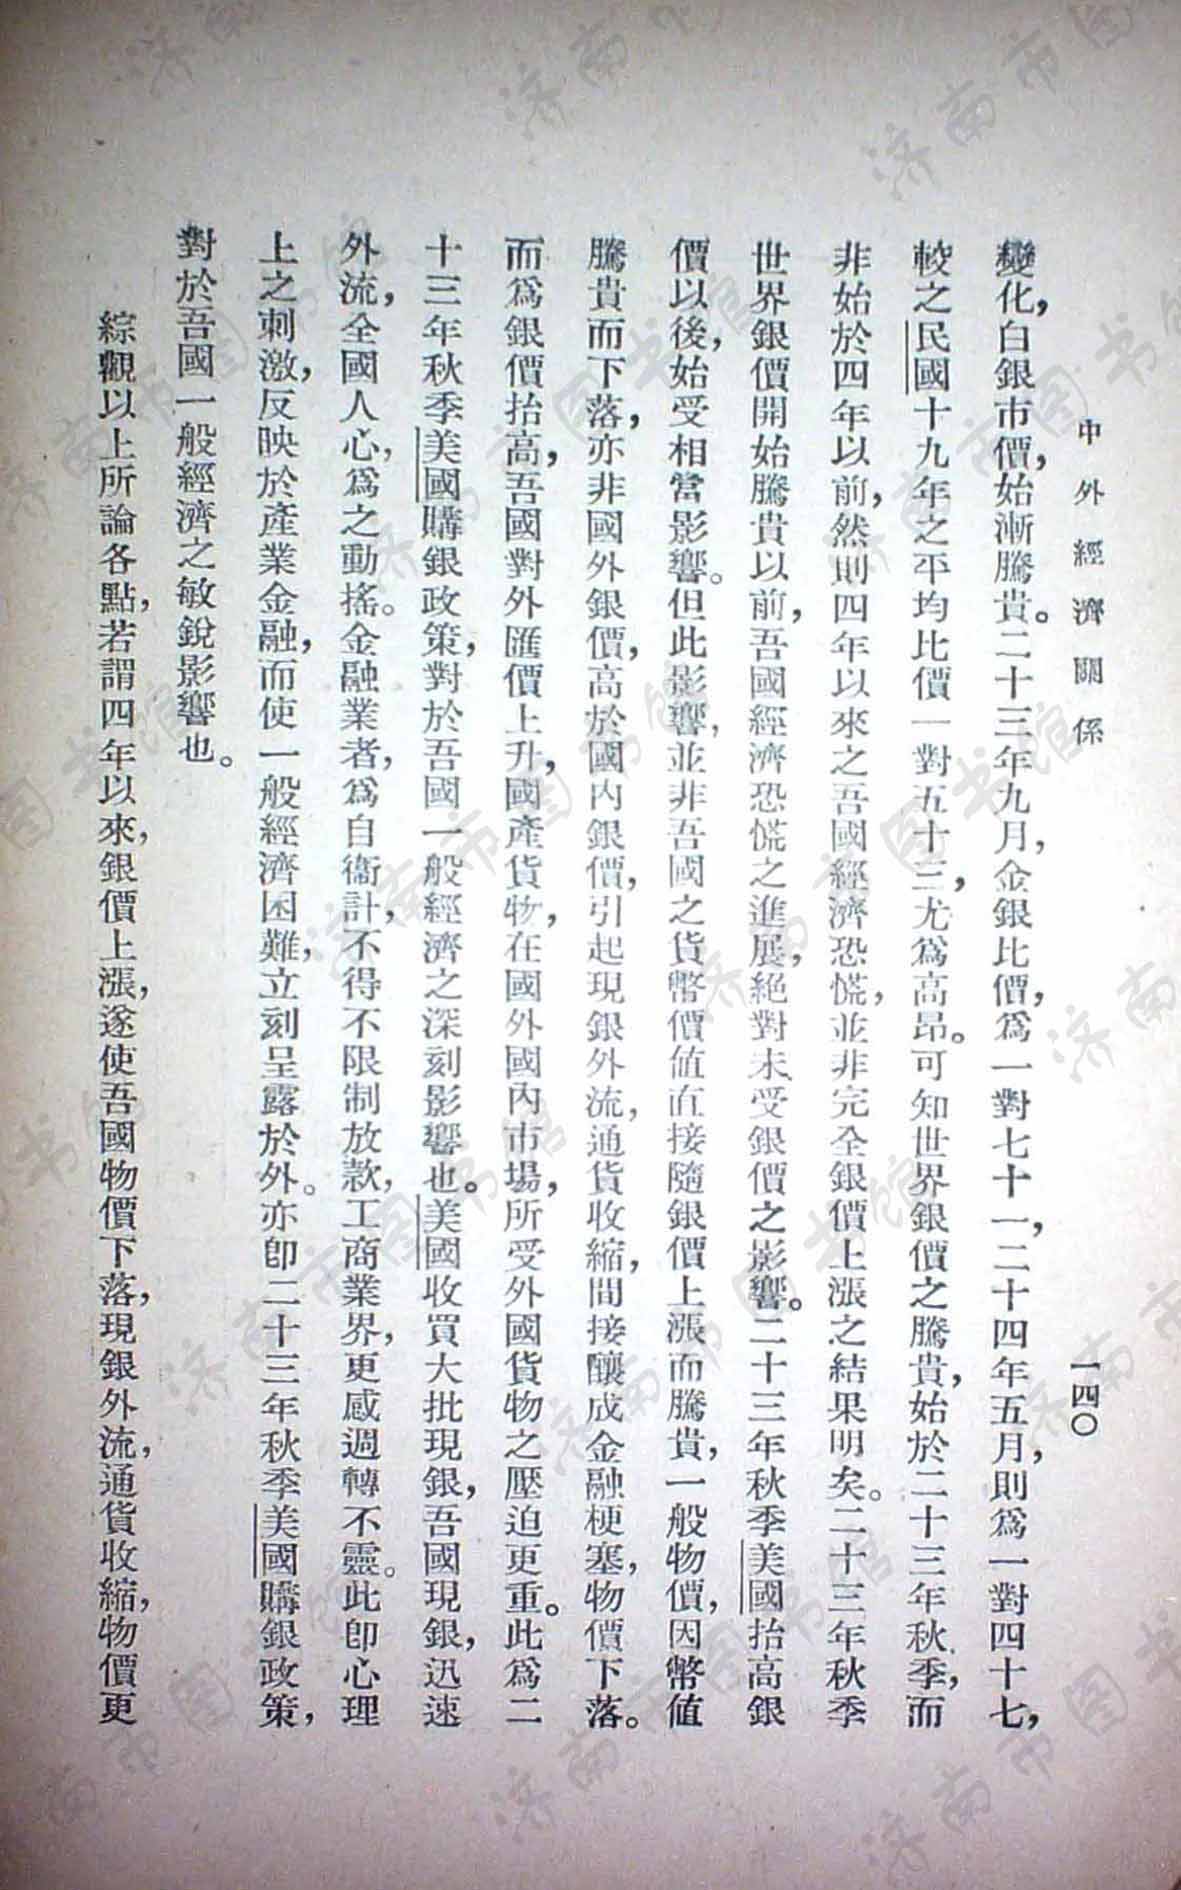 中外經濟關係
一四〇
變化，白銀市價，始漸騰貴。二十三年九月，金銀比價，爲一對七十一，二十四年五月，則爲一對四十七，
較之民國十九年之平均比價一對五十三，尤爲高昂。可知世界銀價之騰貴，始於二十三年秋季，而
非始於四年以前，然則四年以來之吾國經濟恐慌，並非完全銀價上漲之結果明矣。二十三年秋季
世界銀價開始騰貴以前，吾國經濟恐慌之進展，絕對未受銀價之影響。二十三年秋季美國抬高銀
價以後，始受相當影響。但此影響，並非吾國之貨幣價值直接隨銀價上漲而騰貴，一般物價，因幣値
騰貴而下落，亦非國外銀價，高於國內銀價，引起現銀外流，通貨收縮，間接釀成金融梗塞，物價下落。
而爲銀價抬高，吾國對外匯價上升，國產貨物，在國外國內市場，所受外國貨物之壓迫更重。此爲二
十三年秋季美國購銀政策，對於吾國一般經濟之深刻影響也。美國收買大批現銀，吾國現銀，迅速
外流，全國人心，爲之動搖。金融業者，爲自衞計，不得不限制放款，工商業界，更感週轉不靈。此卽心理
上之刺激，反映於產業金融，而使一般經濟困難，立刻呈露於外。亦卽二十三年秋季美國購銀政策，
對於吾國一般經濟之敏銳影響也。
綜觀以上所論各點，若謂四年以來，銀價上漲，遂使吾國物價下落，現銀外流，通貨收縮，物價更
济南市图书馆